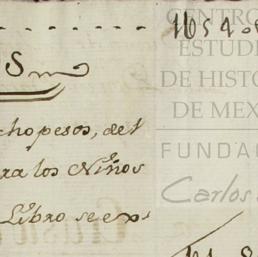 S
chopesos, de l
ra los Niños
Libro se exp
CENTRO
ESTUDI
DE HISTO
DE MEX
FUNDAC
Carlos